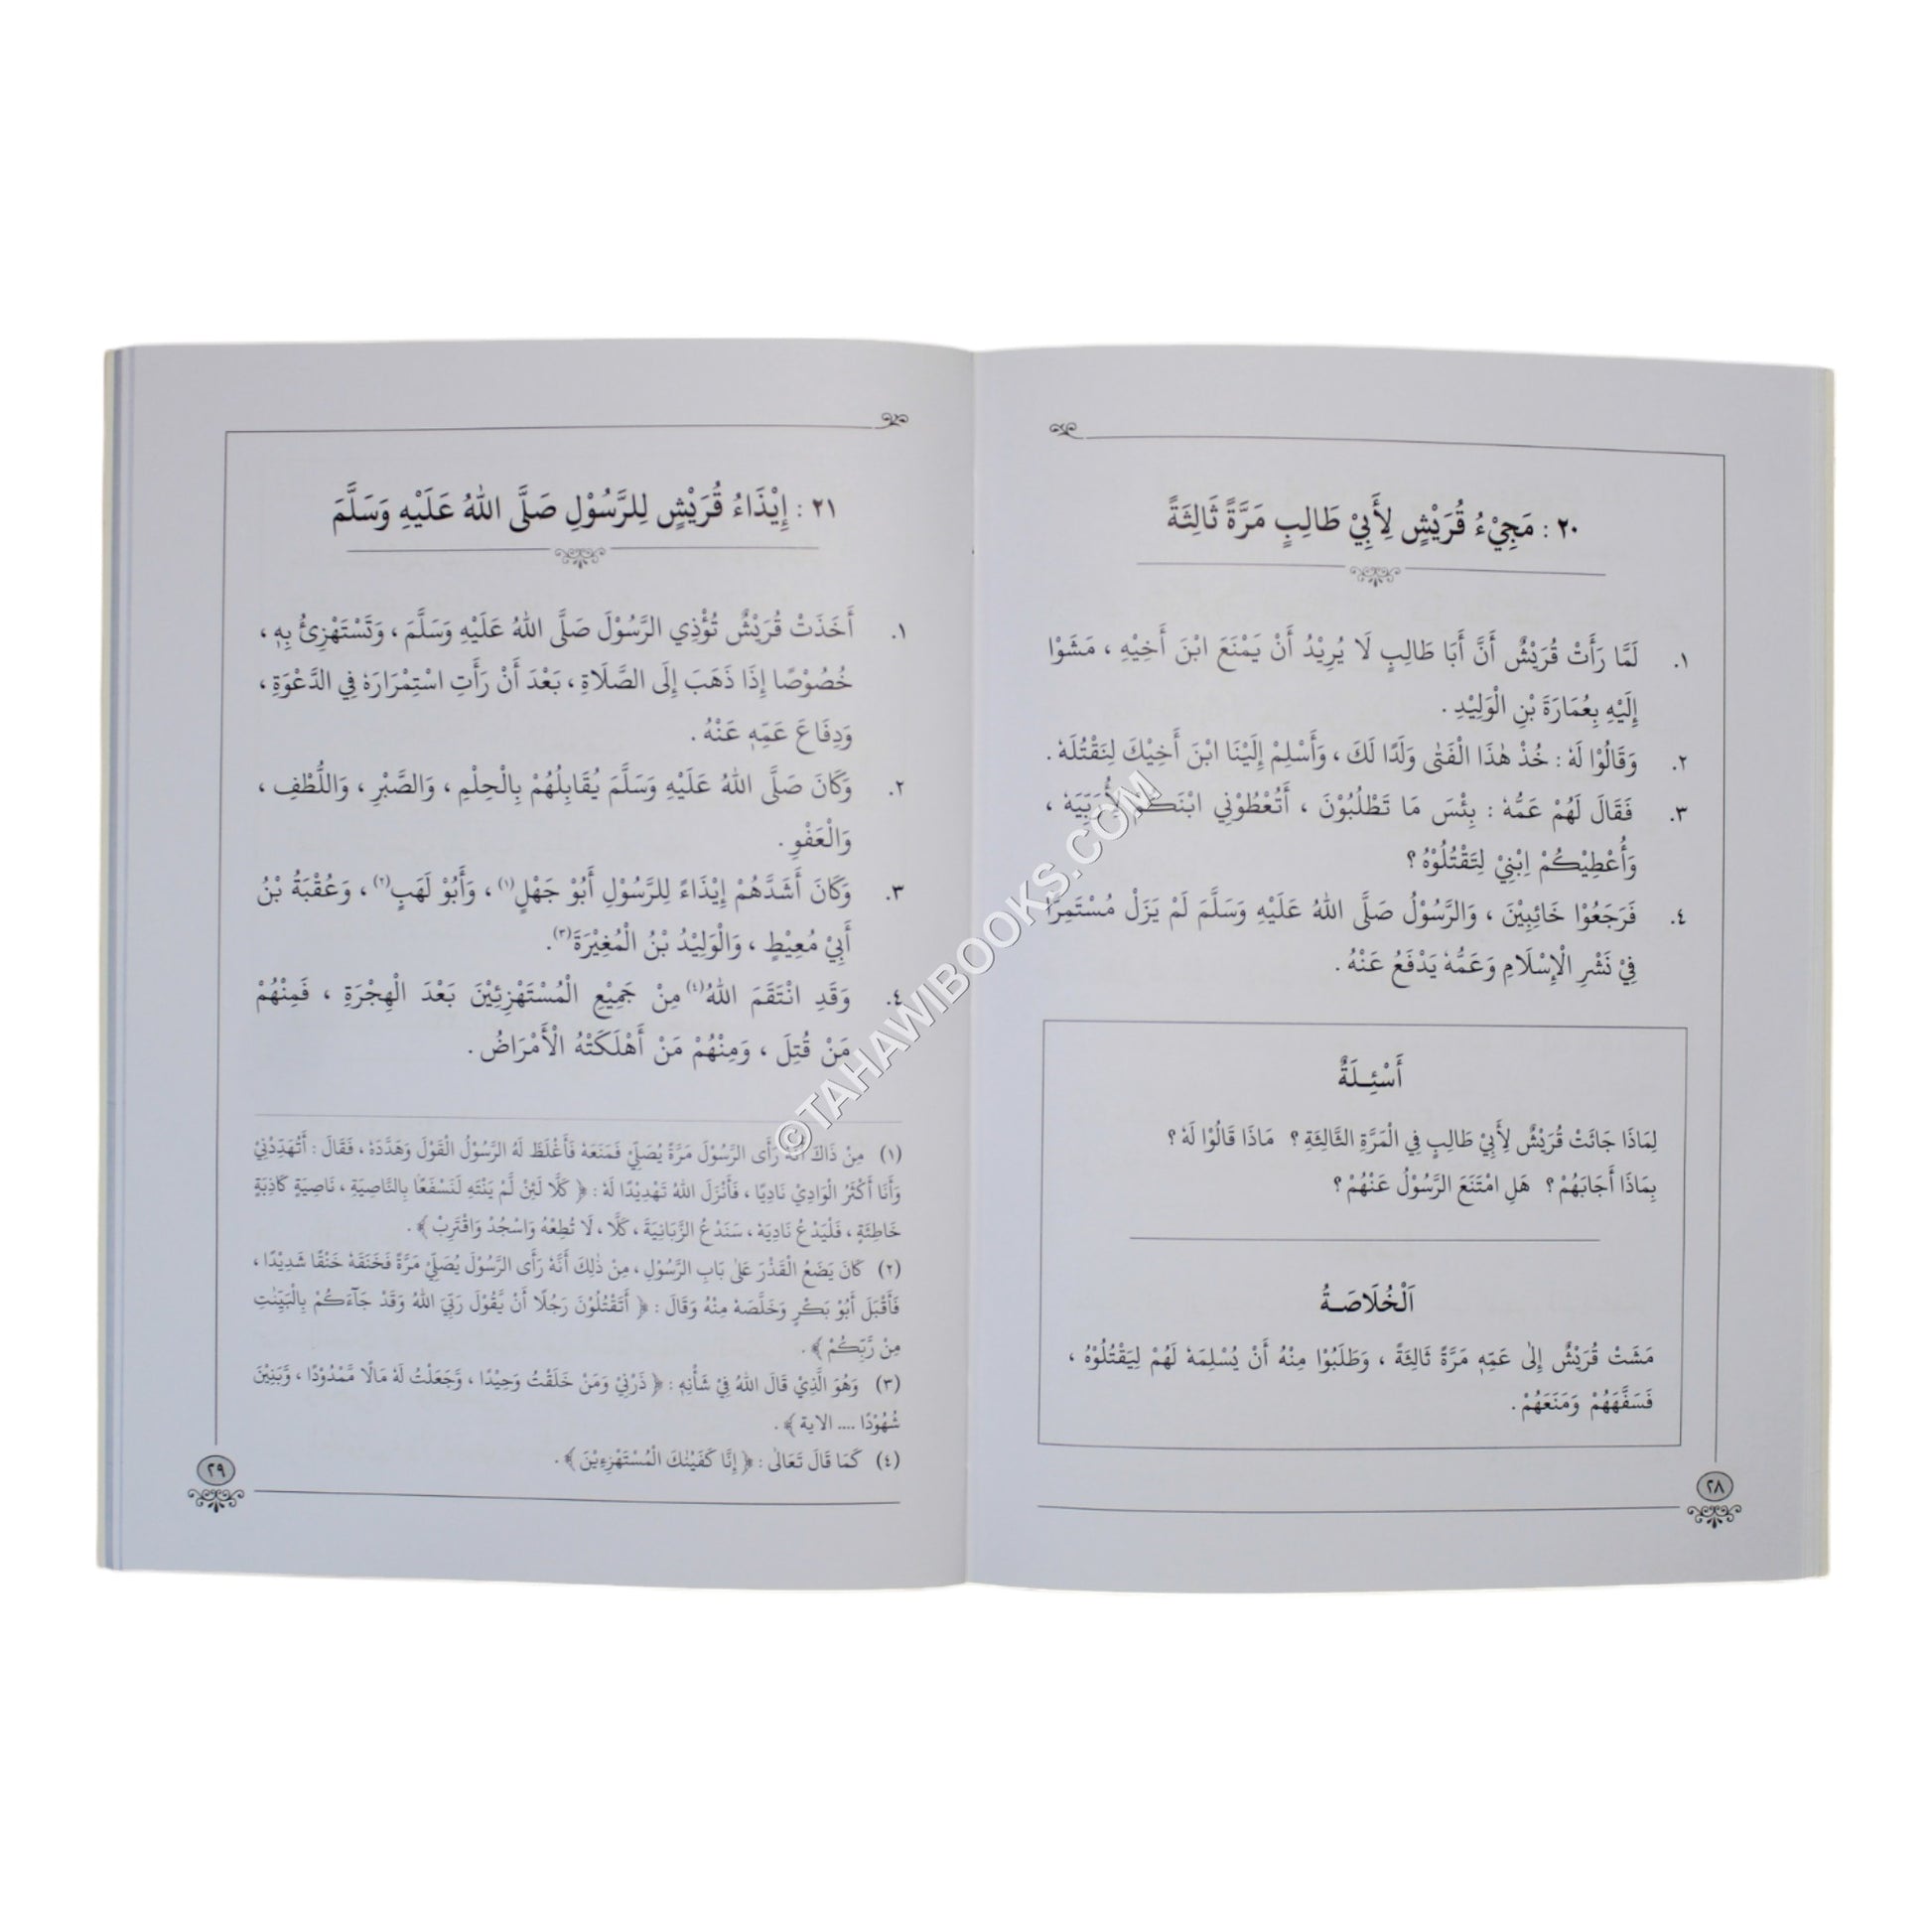 ٢٠ : مَجِيْءُ قُرَيْشٍ لِأَبِيْ طَالِبٍ مَرَّةً ثَالِثَةً
١. لَمَّا رَأَتْ قُرَيْشٌ أَنَّ أَبَا طَالِبٍ لَا يُرِيْدُ أَنْ يَمْنَعَ ابْنَ أَخِيْهِ ، مَشَوْا
إِلَيْهِ بِعُمَارَةَ بْنِ الْوَلِيْدِ .
٢. وَقَالُوْا لَهٗ : خُذْ هٰذَا الْفَتٰى وَلَدًا لَكَ ، وَأَسْلِمْ إِلَيْنَا ابْنَ أَخِيْكَ لِنَقْتُلَهٗ .
٣. فَقَالَ لَهُمْ عَمُّهٗ : بِئْسَ مَا تَطْلُبُوْنَ ، أَتُعْطُوْنِي ابْنَكُمْ لِأُرَبِّيَهٗ ،
وَأُعْطِيْكُمْ اِبْنِيْ لِتَقْتُلُوْهُ ؟
٤. فَرَجَعُوْا خَائِبِيْنَ ، وَالرَّسُوْلُ صَلَّى اللهُ عَلَيْهِ وَسَلَّمَ لَمْ يَزَلْ مُسْتَمِرًّا
فِيْ نَشْرِ الْإِسْلَامِ وَعَمُّهٗ يَدْفَعُ عَنْهُ .
أَسْئِـلَةٌ
لِمَاذَا جَائَتْ قُرَيْشٌ لِأَبِيْ طَالِبٍ فِي الْمَرَّةِ الثَّالِثَةِ ؟ مَاذَا قَالُوْا لَهٗ ؟
بِمَاذَا أَجَابَهُمْ ؟ هَلِ امْتَنَعَ الرَّسُوْلُ عَنْهُمْ ؟
اَلْخُلَاصَـةُ
مَشَتْ قُرَيْشٌ إِلٰى عَمِّهٖ مَرَّةً ثَالِثَةً ، وَطَلَبُوْا مِنْهُ أَنْ يُسْلِمَهٗ لَهُمْ لِيَقْتُلُوْهُ ،
فَسَفَّهَهُمْ وَمَنَعَهُمْ .
٢٨
٢١ : إِيْذَاءُ قُرَيْشٍ لِلرَّسُوْلِ صَلَّى اللهُ عَلَيْهِ وَسَلَّمَ
١. أَخَذَتْ قُرَيْشٌ تُؤْذِي الرَّسُوْلَ صَلَّى اللهُ عَلَيْهِ وَسَلَّمَ ، وَتَسْتَهْزِئُ بِهٖ ،
خُصُوْصًا إِذَا ذَهَبَ إِلَى الصَّلَاةِ ، بَعْدَ أَنْ رَأَتِ اسْتِمْرَارَهٗ فِي الدَّعْوَةِ ،
وَدِفَاعَ عَمِّهٖ عَنْهُ .
٢. وَكَانَ صَلَّى اللهُ عَلَيْهِ وَسَلَّمَ يُقَابِلُهُمْ بِالْحِلْمِ ، وَالصَّبْرِ ، وَاللُّطْفِ ،
وَالْعَفْوِ .
٣. وَكَانَ أَشَدَّهُمْ إِيْذَاءً لِلرَّسُوْلِ أَبُوْ جَهْلٍ(١) ، وَأَبُوْ لَهَبٍ(٢) ، وَعُقْبَةُ بْنُ
أَبِيْ مُعِيْطٍ ، وَالْوَلِيْدُ بْنُ الْمُغِيْرَةَ(٣).
٤. وَقَدِ انْتَقَمَ اللهُ(٤) مِنْ جَمِيْعِ الْمُسْتَهْزِئِيْنَ بَعْدَ الْهِجْرَةِ ، فَمِنْهُمْ
مَنْ قُتِلَ ، وَمِنْهُمْ مَنْ أَهْلَكَتْهُ الْأَمْرَاضُ .
(١) مِنْ ذَاكَ أَنَّهٗ رَأَى الرَّسُوْلَ مَرَّةً يُصَلِّيْ فَمَنَعَهٗ فَأَغْلَظَ لَهُ الرَّسُوْلُ الْقَوْلَ وَهَدَّدَهٗ ، فَقَالَ : أَتُهَدِّدُنِيْ
وَأَنَا أَكْثَرُ الْوَادِيْ نَادِيًا ، فَأَنْزَلَ اللهُ تَهْدِيْدًا لَهٗ : ﴿ كَلَّا لَئِنْ لَّمْ يَنْتَهِ لَنَسْفَعًا بِالنَّاصِيَةِ ، نَاصِيَةٍ كَاذِبَةٍ
خَاطِئَةٍ ، فَلْيَدْعُ نَادِيَهٗ ، سَنَدْعُ الزَّبَانِيَةَ ، كَلَّا ، لَا تُطِعْهُ وَاسْجُدْ وَاقْتَرِبْ ﴾ .
(٢) كَانَ يَضَعُ الْقَذْرَ عَلٰى بَابِ الرَّسُوْلِ ، مِنْ ذٰلِكَ أَنَّهٗ رَأَى الرَّسُوْلَ يُصَلِّيْ مَرَّةً فَخَنَقَهٗ خَنْقًا شَدِيْدًا ،
فَأَقْبَلَ أَبُوْ بَكْرٍ وَخَلَّصَهٗ مِنْهُ وَقَالَ : ﴿ أَتَقْتُلُوْنَ رَجُلًا أَنْ يَّقُوْلَ رَبِّيَ اللهُ وَقَدْ جَآءَكُمْ بِالْبَيِّنٰتِ
مِنْ رَّبِّكُمْ ﴾ .
(٣) وَهُوَ الَّذِيْ قَالَ اللهُ فِيْ شَأْنِهٖ : ﴿ ذَرْنِيْ وَمَنْ خَلَقْتُ وَحِيْدًا ، وَّجَعَلْتُ لَهٗ مَالًا مَّمْدُوْدًا ، وَّبَنِيْنَ
شُهُوْدًا .... الاية ﴾ .
(٤) كَمَا قَالَ تَعَالٰى : ﴿ إِنَّا كَفَيْنٰكَ الْمُسْتَهْزِءِيْنَ ﴾ .
٢٩
©TAHAWIBOOKS.COM